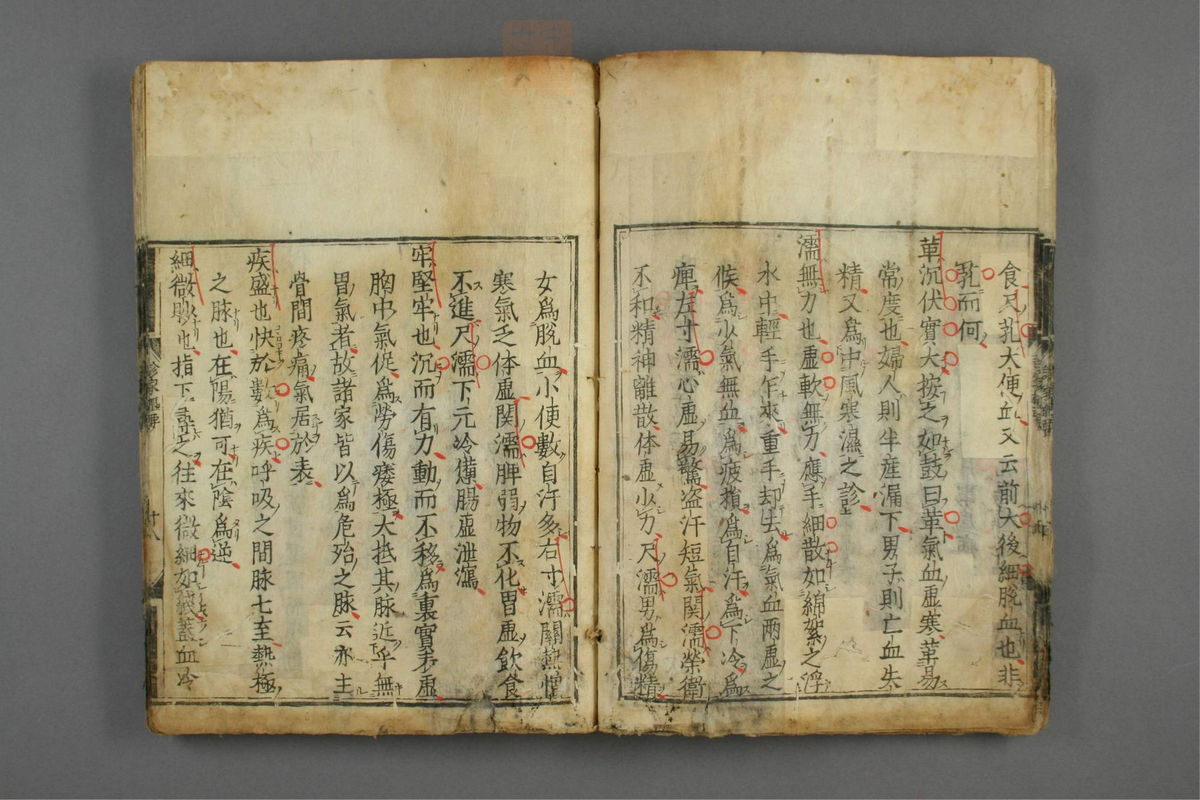 食尺芤大便血又云前大後細脫血也非
芤而何
革沉伏實大按之如鼓曰革氣血虛寒革易
常度也婦人則半產漏下男子則亡血失
精又為中風寒濕之診
濡無力也虛軟無力應手細散如綿絮之浮
水中輕手乍來重手却去為氣血兩虛之
候為少氣無血為疲損為自汗為下冷為
痺左寸濡心虛易驚盗汗短氣関濡榮衛
不和精神離散体虛少力尺濡男為傷精
女為脫血小便數自汗多右寸濡關熱憎
寒氣乏体虛関濡脾弱物不化胃虛飲食
不進尺濡下元冷憊腸虛泄瀉
牢堅牢也沉而有力動而不移為裏實表虛
胸中氣促為勞傷痿極大抵其脉近乎無
胃氣者故諸家皆以為危殆之脉云亦主
骨間疼痛氣居於表
疾盛也快於數為疾呼吸之間脉七至熱極
之脉也在陽猶可在陰為逆
細微眇也指下尋之往來微細如 血冷
十八